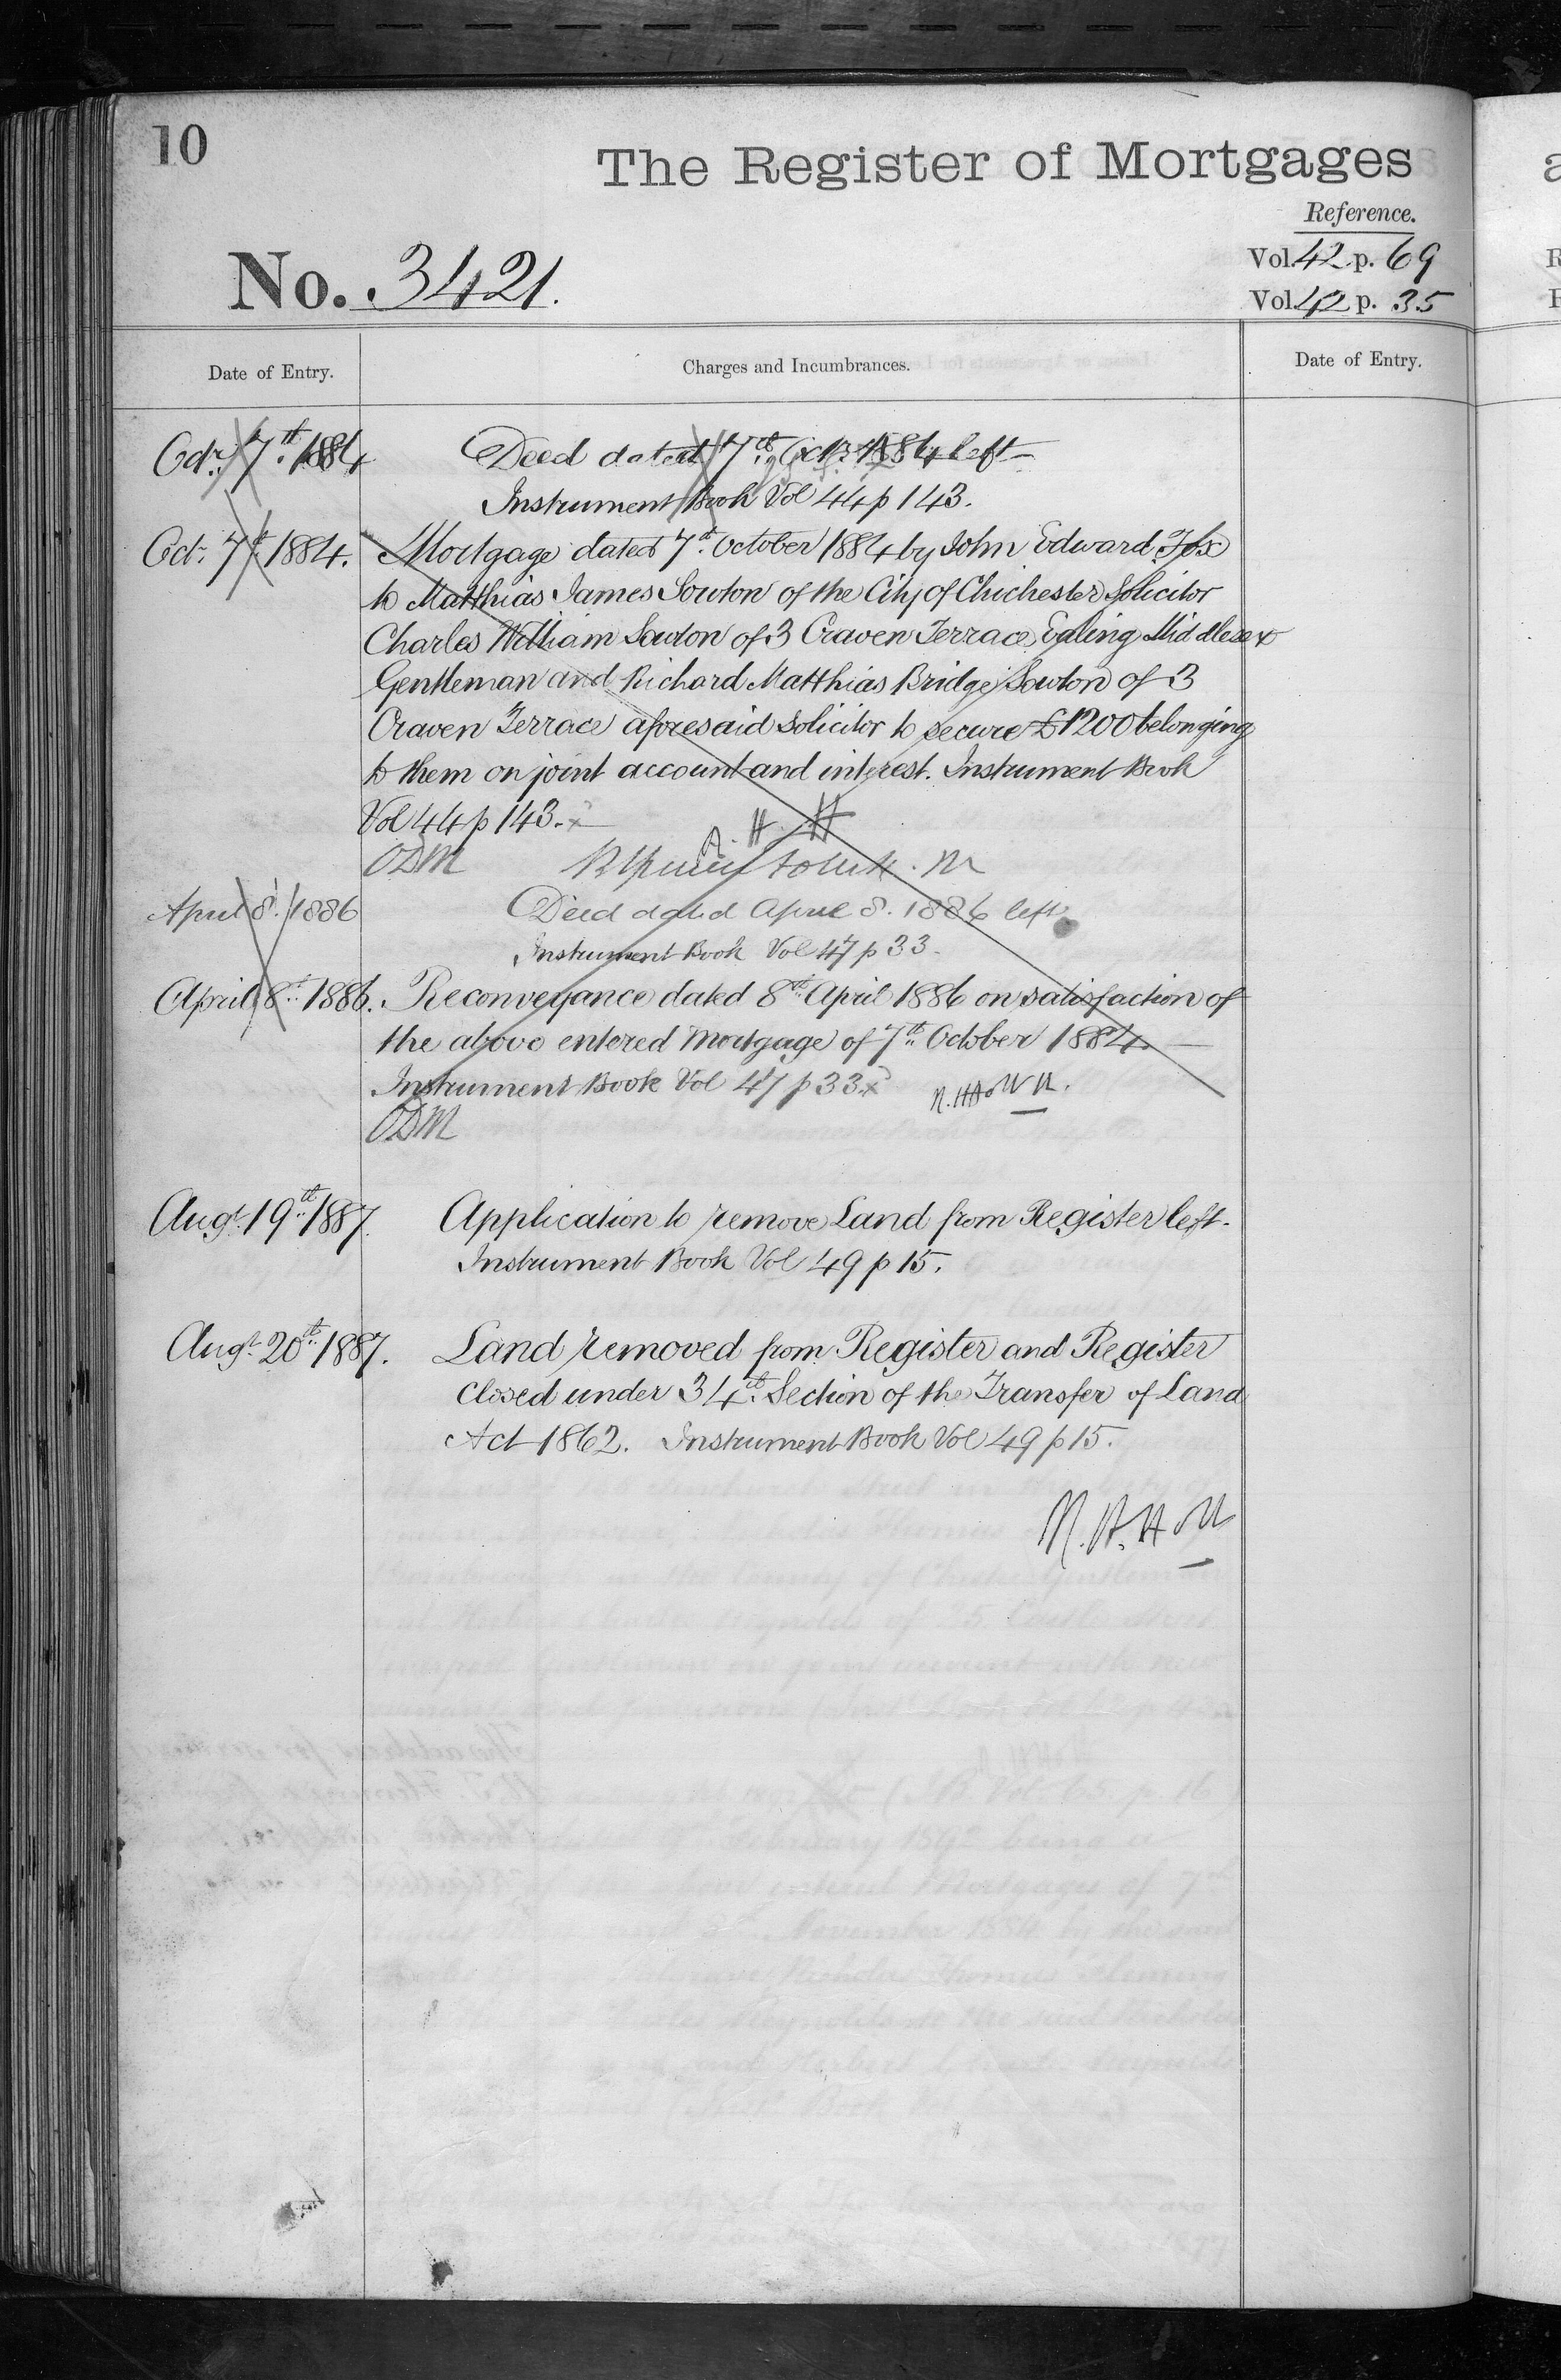 10
The Register of Mortgages
Reference.
Vol. 42 p. 69
No. 3421.
Vol. 42 p. 35
Date of Entry.
Charges and Incumbrances.
Date of Entry.
Octr. 7th. 1884 Deed dated 7th. Octr. 1884 left
Instrument Book Vol 44 p 143.
Octr. 7th. 1884. Mortgage dated 7th. October 1884 by John Edward Fox
to Matthias James Sowton of the City of Chichester Solicitor
Charles William Sowton of 3 Craven Terrace Ealing Middlesex
Gentleman and Richard Matthias Bridge Sowton of 3
Craven Terrace aforesaid Solicitor to secure £1200 belonging
to them on joint account and interest. Instrument Book
Vol 44 p 143.
ODM
April 8. 1886 Deed dated April 8. 1886 left
Instrument Book Vol 47 p 33.
April 8th. 1886. Reconveyance dated 8th April 1886 on satisfaction of
the above entered Mortgage of 7th. October 1884.
Instrument Book Vol 47 p 33.
ODM
Augt. 19th. 1887. Application to remove Land from Register left.
Instrument Book Vol 49 p 15.
Augt. 20th. 1887. Land removed from Register and Register
closed under 34th. Section of the Transfer of Land
Act 1862. Instrument Book Vol 49 p 15.